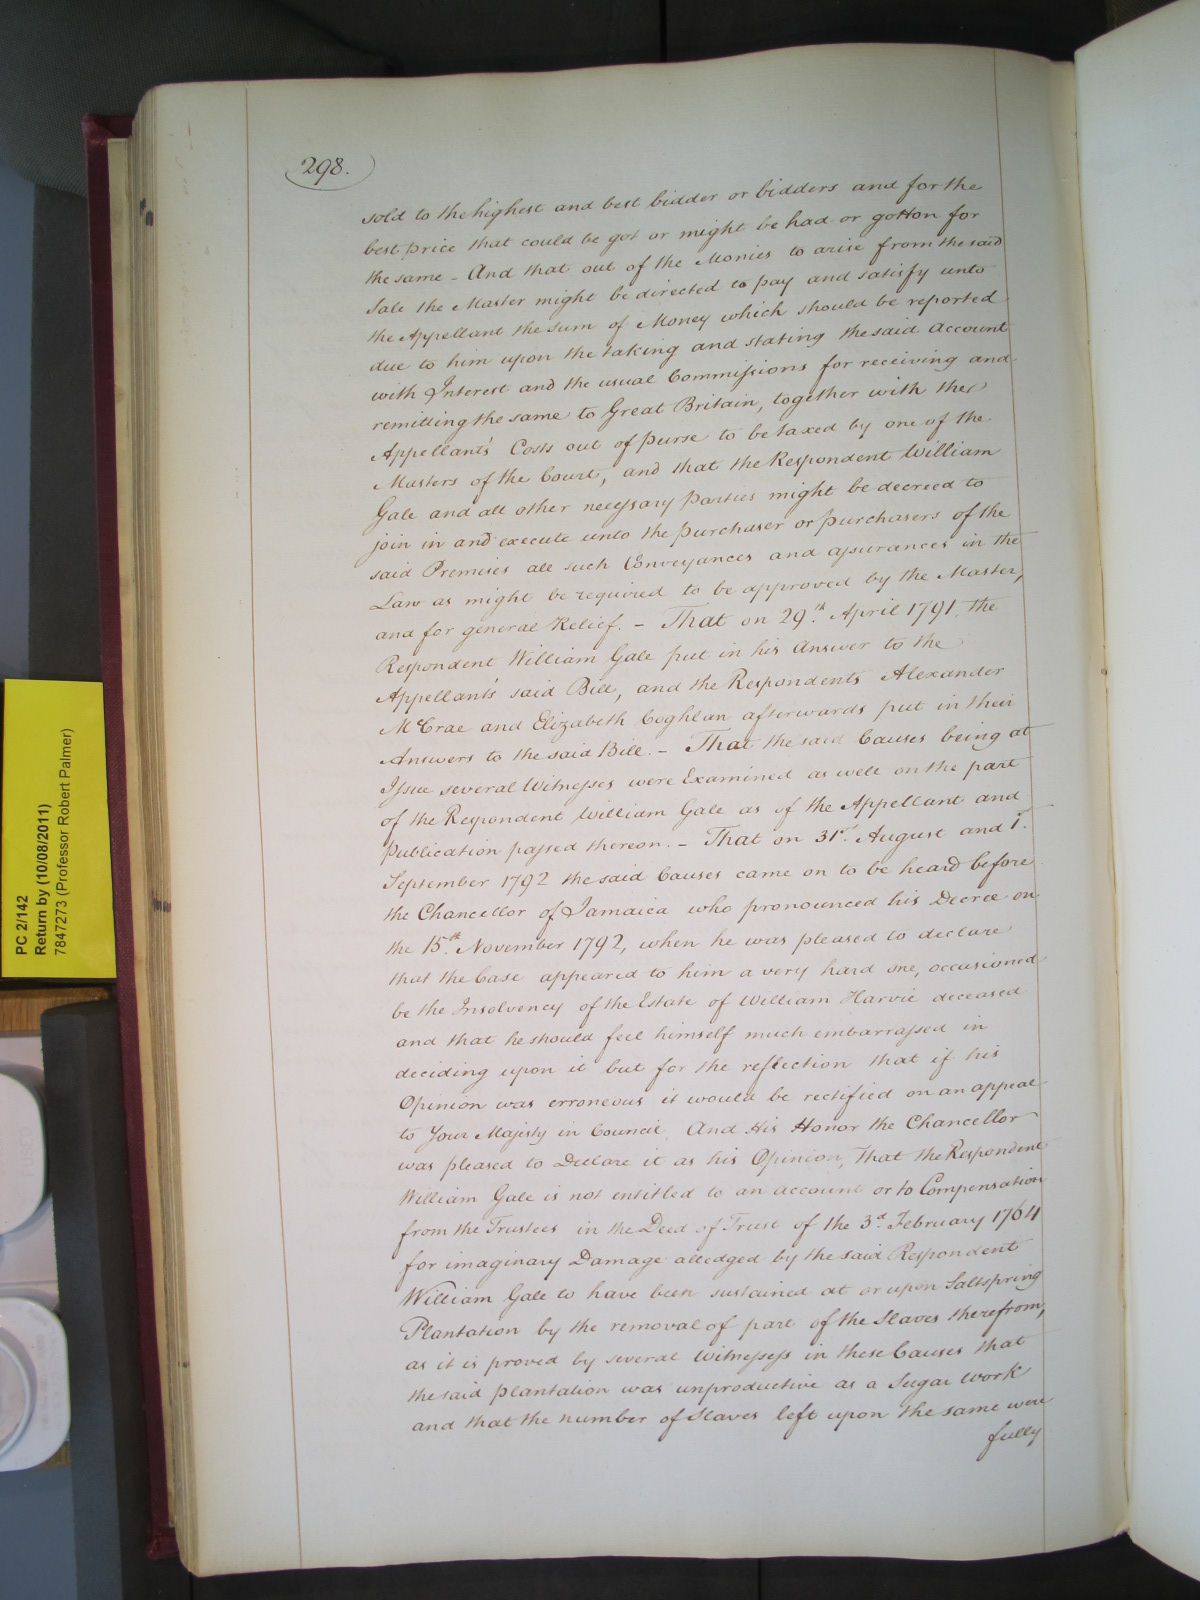 298.
sold to the highest and best bidder or bidders and for the
best price that could be got or might be had or gotton for
the same - And that out of the Monies to arise from the said
Sale the Master might be directed to pay and satisfy unto
the Appellant the sum of Money which should be reported
due to him upon the taking and stating the said Account
with Interest and the usual Commissions for receiving and
remitting the same to Great Britain, together with the
Appellant's Costs out of purse to be taxed by one of the
Masters of the Court, and that the Respondent William
Gale and all other necessary parties might be decreed to
join in and execute unto the purchaser or purchasers of the
said Premises all such Conveyances and assurances in the
Law as might be required to be approved by the Master,
and for general Relief. - That on 29.th April 1791, the
Respondent William Gale put in his Answer to the
Appellant's said Bill, and the Respondents Alexander
McCrae and Elizabeth Coghlan afterwards put in their
Answers to the said Bill. - That the said Causes being at
Issue several Witnesses were Examined as well on the part
of the Respondent William Gale as of the Appellant and
publication passed thereon. - That on 31st. August and 1st.
September 1792 the said Causes came on to be heard before
the Chancellor of Jamaica who pronounced his Decree on
the 15.th November 1792, when he was pleased to declare
that the Case appeared to him a very hard one, occasioned
be the Insolvency of the Estate of William Harvie deceased
and that he should feel himself much embarrassed in
deciding upon it but for the reflection that if his
Opinion was erroneous it would be rectified on an appeal
to Your Majesty in Council. And His Honor the Chancellor
was pleased to Declare it as his Opinion, That the Respondent
William Gale is not entitled to an account or to Compensation
from the Trustees in the Deed of Trust of the 3.d February 1764
for imaginary Damage alledged by the said Respondent
William Gale to have been sustained at or upon Saltspring
Plantation by the removal of part of the Slaves therefrom,
as it is proved by several Witnessess in these Causes that
the said plantation was unproductive as a Sugar Work
and that the number of Slaves left upon the same were
fully
PC 2/142
Return by (10/08/2011)
7847273 (Professor Robert Palmer)